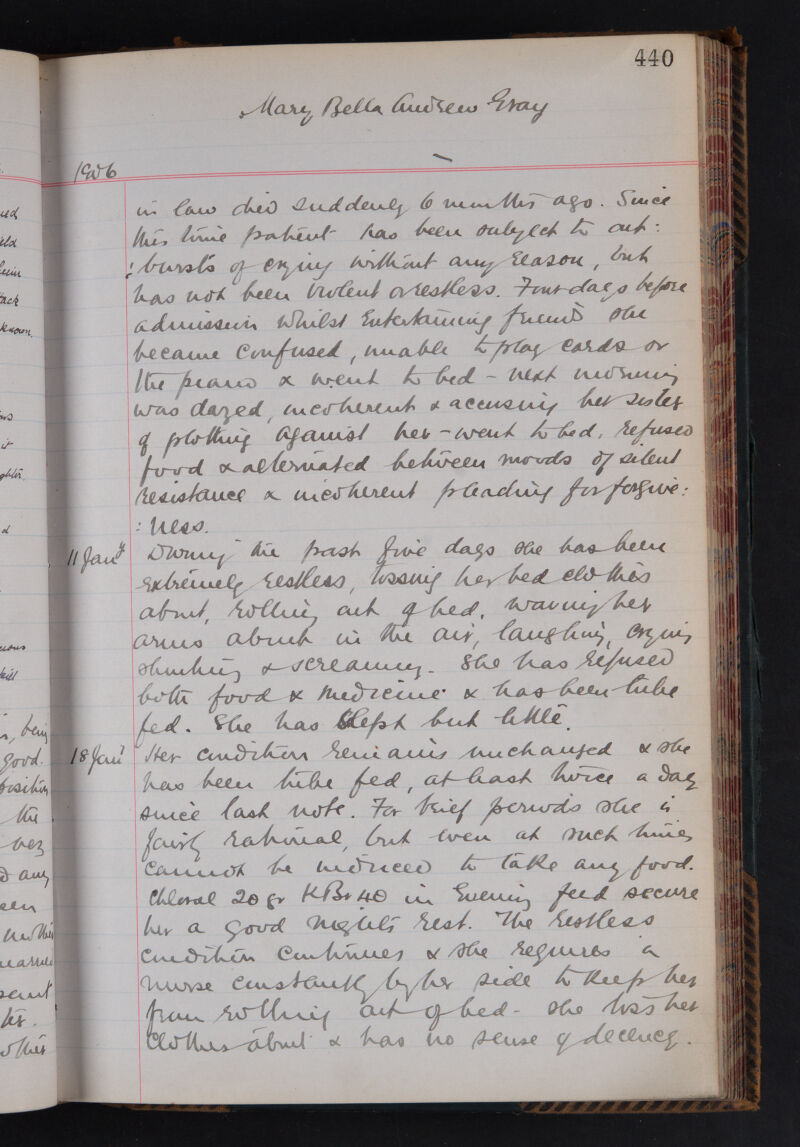 440
Mary Bella Andrew Gray
1906
in law died suddenly 6 months ago. Since
this time patient has been subject to out:
: bursts of crying without any reason, but
has not been violent or restless. Four days before
admission whilst Entertaining friends she
became confused, unable to play cards or
the piano & went to bed - next morning
was dazed, incoherent & accusing her sister
of plotting against her - went to bed, refused
food & alternated between moods of silent
resistance & incoherent pleading for forgive:
: ness.
11 Jany During the past five days she has been
extremely restless, tossing her bed clothes
about, rolling out of bed, waving her
arms about in the air, laughing, crying
shouting & screaming. She has refused
both food & medicine & has been tube
fed. She has slept but little.
18 Jany Her condition remains unchanged & she
has been tube fed, at least twice a day
since last note. For brief periods she is
fairly rational, but even at such times
cannot be induced to take any food.
Chloral 20 gr KBr 40 in Evening feed secure
her a good nights rest. The restless
condition continues & she requires a
nurse constantly by her side to keep her
from rolling out of bed - she toss her
Clothes about & has no sense of decency.
ued
tack
known.
ghter.
d
, being
good.
position
the
very
d any
een